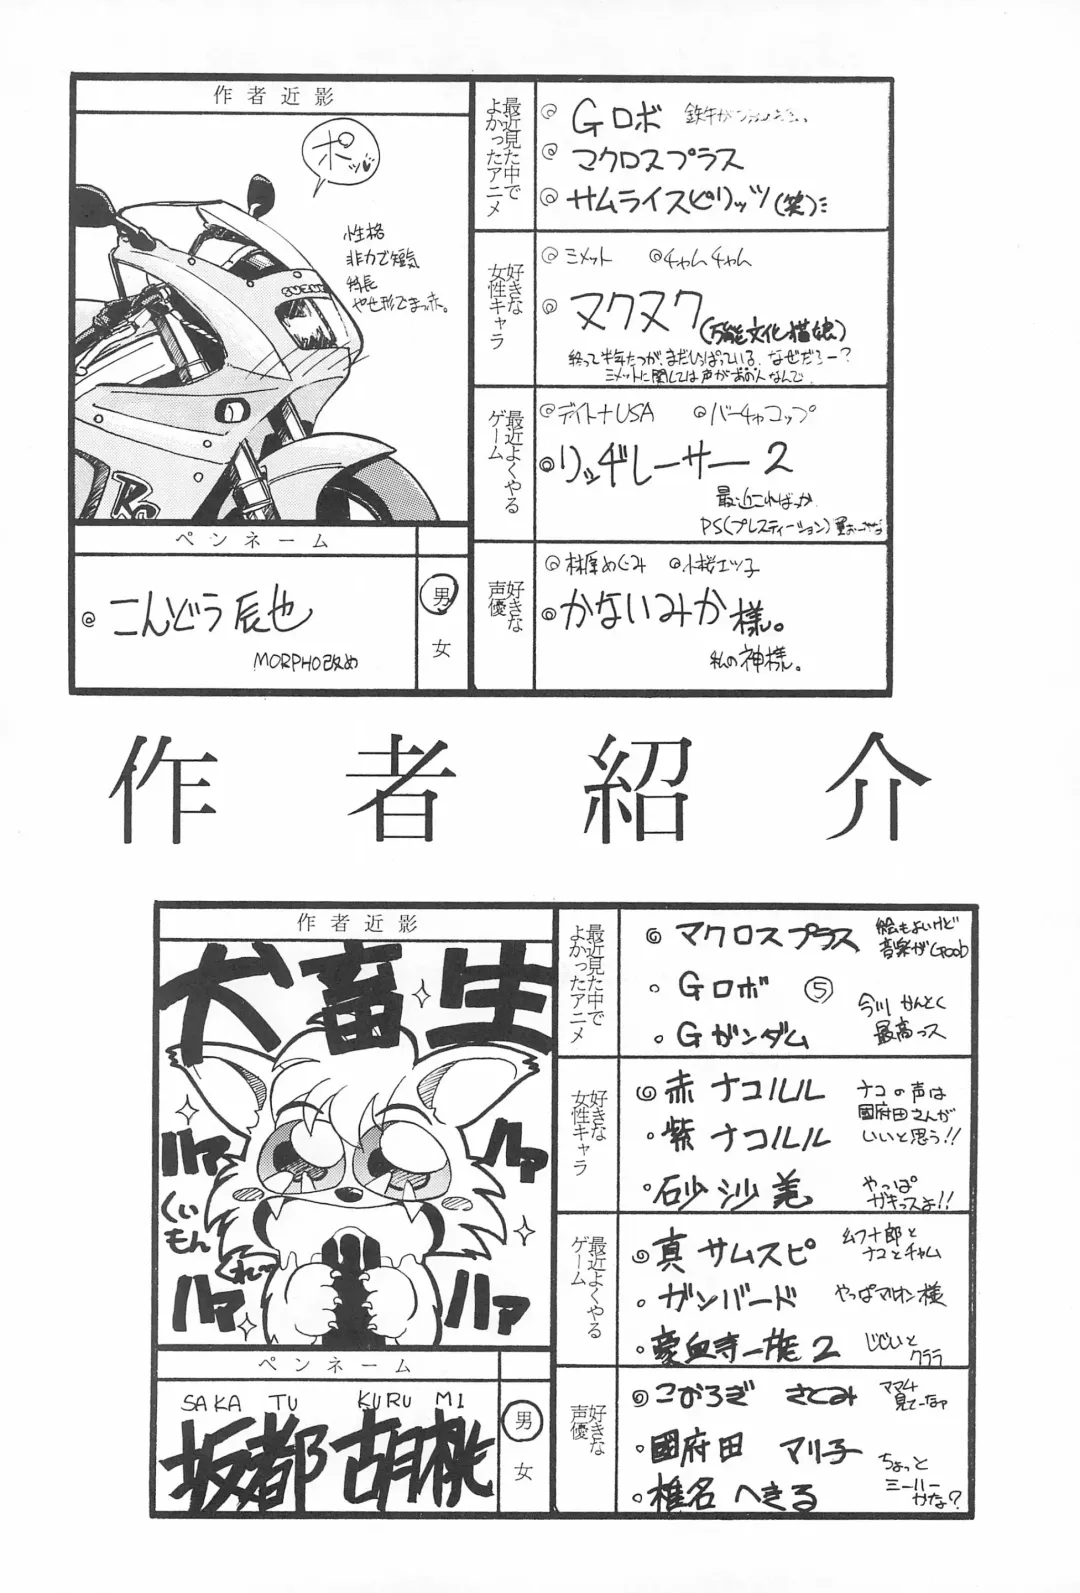 作者近影
ポッ
性格
非力で短気
特長
やせ形でまっ赤。
SUZUKI
ペンネーム
こんどう辰也
MORPHO改め
男
女
最近見た中で
よかったアニメ
Gロボ
マクロスプラス
サムライスピリッツ(笑)
好きな
女性キャラ
ミメット
チャムチャム
マクヌク
(万能文化猫娘)
終って半年たつが、まだいっぱっている、なぜだろー?
ミメットに関しては声があの人なんで
最近よくやる
ゲーム
デイトナUSA
バーチャコップ
リッヂレーサー2
最近こればっか
PS(プレスティーション)買おーかな
好きな
声優
林原めぐみ
小桜エツ子
かないみか様。
私の神様。
作者紹介
作者近影
犬畜生
ハァ
ハァ
くいもんくれ~
ハァ
ハァ
ペンネーム
SAKA TU KURU MI
坂都胡桃
男
女
最近見た中で
よかったアニメ
マクロスプラス
絵もよいけど
音楽がGood
Gロボ ⑤
Gガンダム
今川かんとく
最高っス
好きな
女性キャラ
赤ナコルル
紫ナコルル
ナコの声は
國府田さんが
いいと思う!!
砂沙美
やっぱ
ガキっスよ!!
最近よくやる
ゲーム
真サムスピ
ナコとチャム
ガンバード
やっぱマリオン様
豪血寺一族2
じじいと
クララ
好きな
声優
こおろぎ さとみ
ママ4
見てーなァ
國府田 マリ子
椎名へきる
ちょっと
ミーハー
かな?